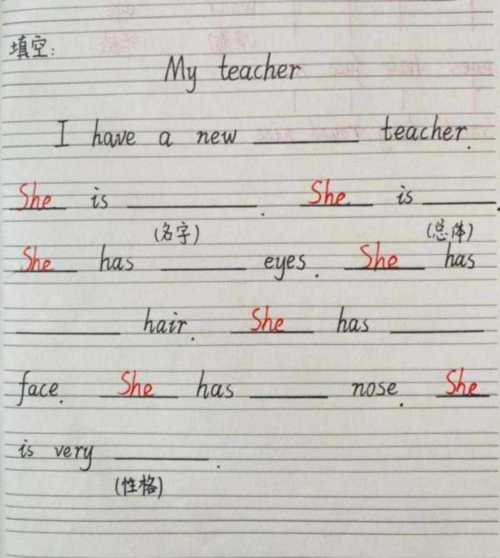 填空:
My teacher
I have a new ________ teacher.
She is ________. She is ________.
(名字) (总体)
She has ________ eyes. She has
________ hair. She has ________
face. She has ________ nose. She
is very ________.
(性格)